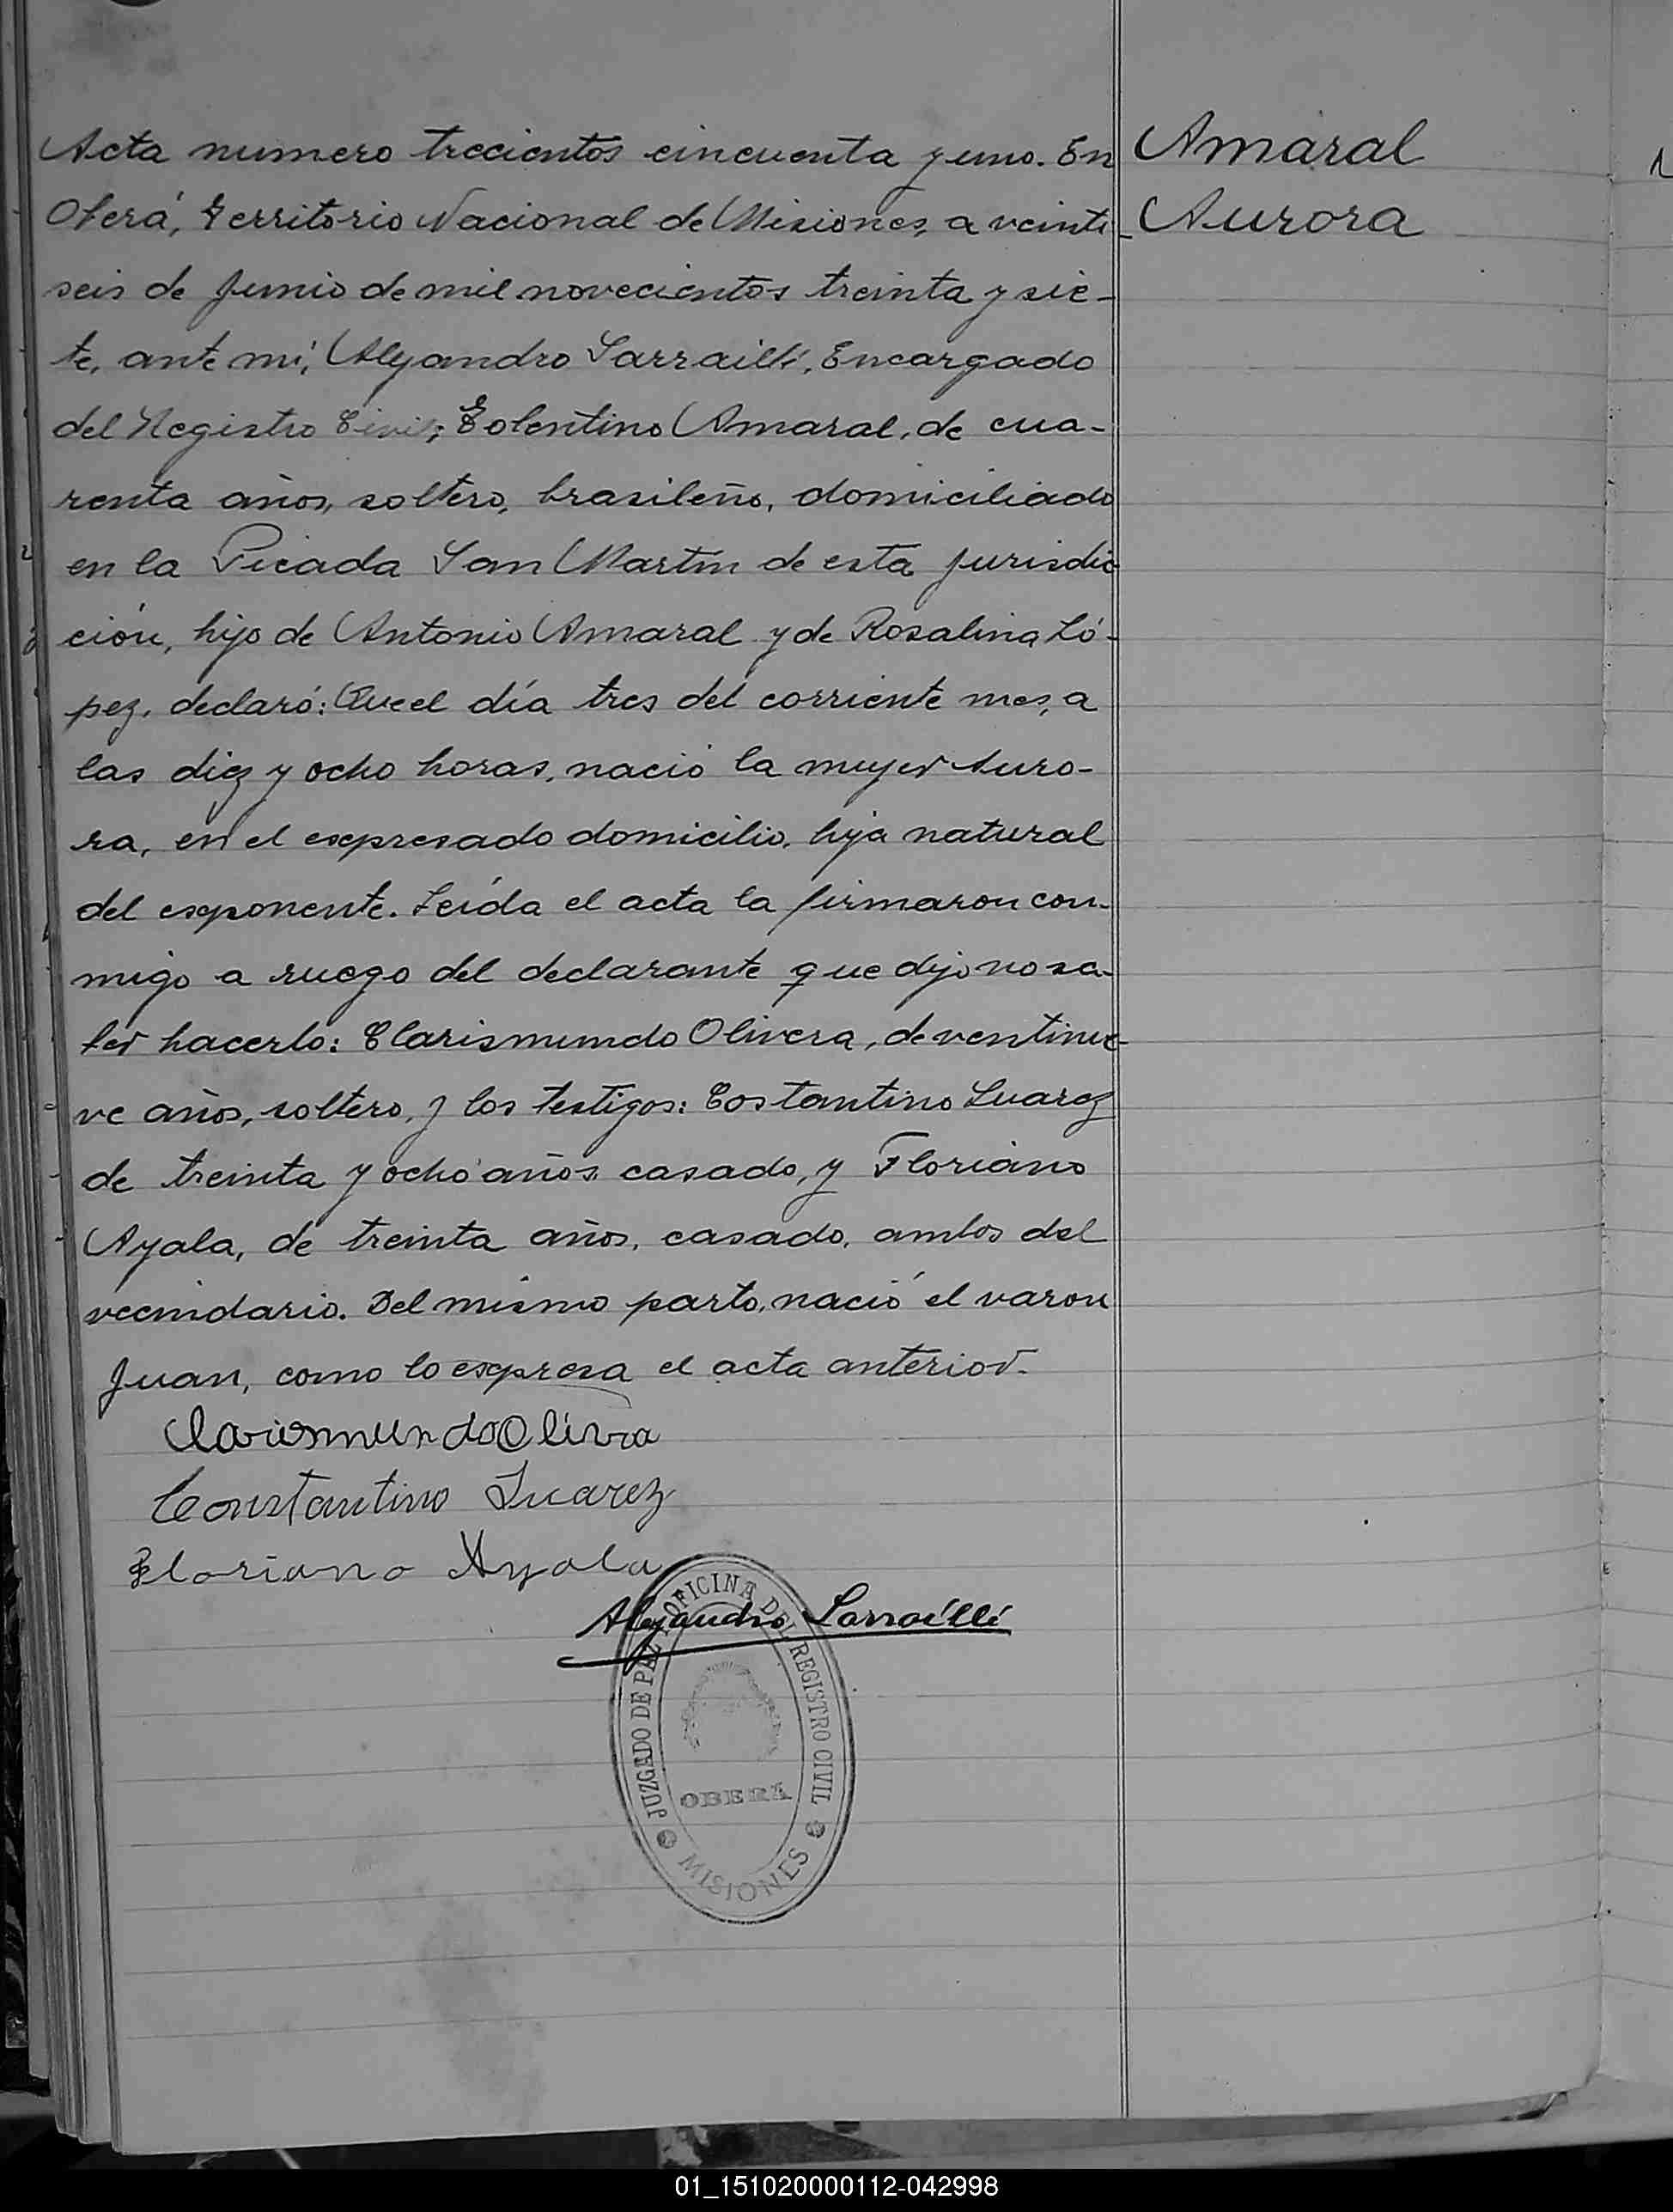 Acta numero trecientos cincuenta y uno. En
Oberá, Territorio Nacional de Misiones, a veinti-
seis de Junio de mil novecientos treinta y sie-
te, ante mi, Alejandro Sarrailli, Encargado
del Registro Civil; Tolentino Amaral, de cua-
renta años, soltero, brasileño, domiciliado
en la Picada San Martin de esta jurisdic-
ción, hijo de Antonio Amaral y de Rosalina Ló-
pez, declaró: Que el día tres del corriente mes, a
las diez y ocho horas, nació la mujer Auro-
ra, en el expresado domicilio, hija natural
del exponente. Leída el acta la firmaron con-
migo a ruego del declarante que dijo no sa-
ber hacerlo: Clarismundo Olivera, de ventinue-
ve años, soltero, y los testigos: Costantino Suarez
de treinta y ocho años casado, y Floriano
Ayala, de treinta años, casado, ambos del
vecindario. Del mismo parto, nació el varon
Juan, como lo expresa el acta anterior.
Amaral
Aurora
Clarismundo Olivra
Constantino Suarez
Floriano Ayala
Alejandro Sarrailli
JUZGADO DE PAZ Y OFICINA DEL REGISTRO CIVIL
OBERA
MISIONES
01_151020000112-042998